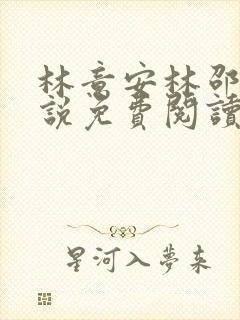 林意安林邵
說免費閱讀
星河入夢來